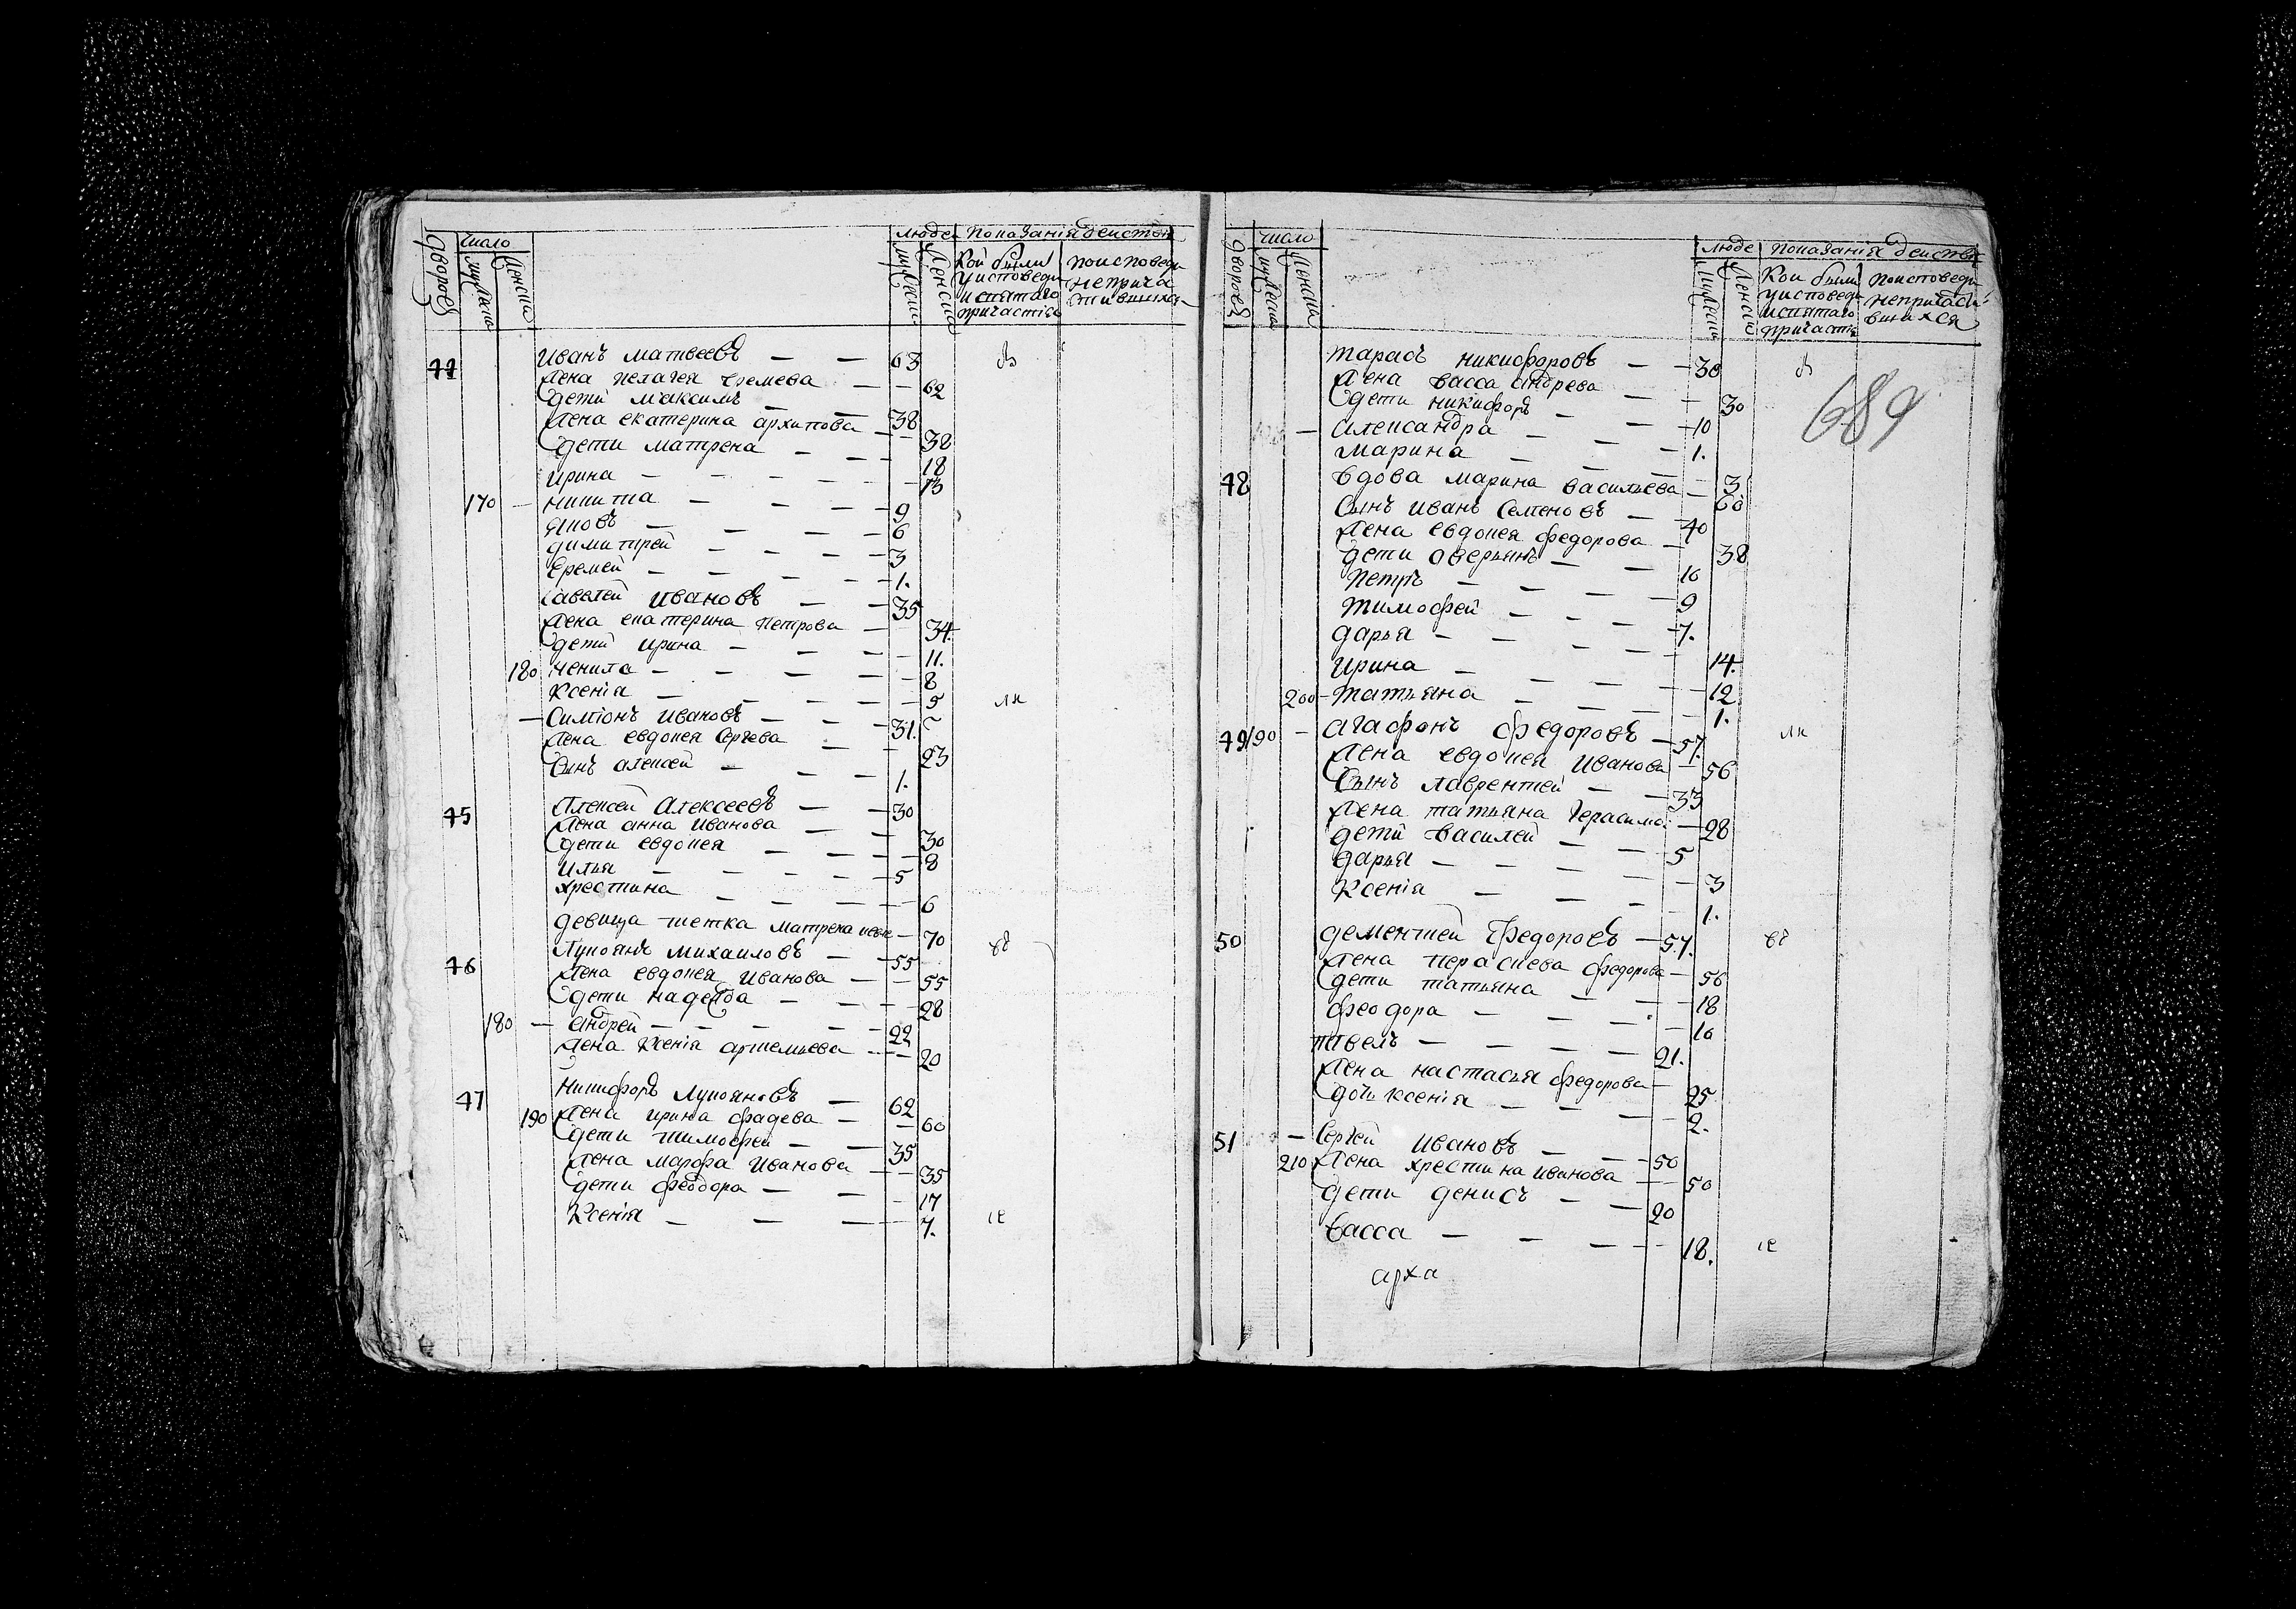 дворовъ число мужеска женска люде мужеска женска показанія действ
Кои были у исповеди и святаго причастія
по исповеди не прича стившихся
44 Иванъ матвеевъ — — 63
Жена пелагея еремева — — 62
дети максимъ — — 38
Жена екатерина архипова — — 38
дети матрена — — 18
ирина — — — — 13
170 — никита — — — — 9
яковъ — — — 6
димитрей — — — 3
Еремей — — — — 1.
Савелей Ивановъ — — 35
Жена екатерина петрова — 34.
дети ирина — — — 11.
180 ненила — — — — 8
Ксенія — — — — 5
— Симіонъ Ивановъ — — 31.
Жена евдокея Сергева — — 23
Сынъ алексей — — — 1.
45 Алексей Алексеевъ — — 30
Жена анна Иванова — — 30
дети евдокея — — — 8
илья — — — — 5
хрестина — — — — 6
девица тетка матрена — 70
46 Лукоянъ михаиловъ — — 55
Жена евдокея Иванова — — 55
дети надежда — — — 28
180 — андрей — — — — 22
Жена Ксенія артемьева — — 20
47 Никифоръ Лукояновъ — 62
190 Жена ирина фадева — — 60
дети тимофей — — 35
Жена марфа Иванова — — 35
дети феодора — — — 17
Ксенія — — — — 7.
дворовъ число мужеска женска люде мужеска женска показанія действ
Кои были у исповеди и святаго причастія
по исповеди не причасти вшихся
689
тарасъ никифоровъ — — 30
Жена васса андрева — — 30
дети никифоръ — — — 10
— александра — — — 1.
марина — — — 3
48 вдова марина васильева — 60
Сынъ иванъ Семеновъ — 40
Жена евдокея федорова — 38
дети аверьянъ — — 16
Петръ — — — — 9
тимофей — — — — 7.
дарья — — — — 14.
ирина — — — — 12
200 — татьяна — — — — 1.
49 190 — агафонъ федоровъ — 57.
Жена евдокея Иванова — 56
Сынъ лаврентей — — 33
Жена татьяна герасимо — 28
дети василей — — — 5
дарья — — — — 3
Ксенія — — — — 1.
50 дементей Федоровъ — 57.
Жена параскева федорова — 56
дети татьяна — — — 18
феодора — — — — 16
павелъ — — — — 21.
Жена настасья федорова — 25
дочь ксенія — — — 2.
51 — Сергей Ивановъ — — 50
210 Жена хрестина иванова — 50
дети денисъ — — 20
васса — — — — 18.
арха